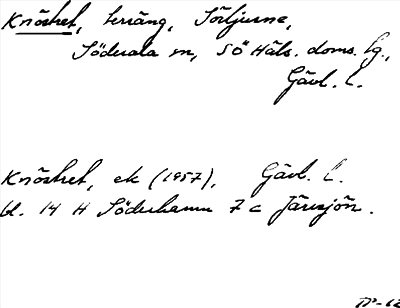 Knöstret, terräng, Sörljusne,
Söderala sn, SÖ Häls. doms. lg.,
Gävl. l.
Knöstret, ek (1957), Gävl. l.
bl. 14 H Söderhamn 7 c Järvsjön.